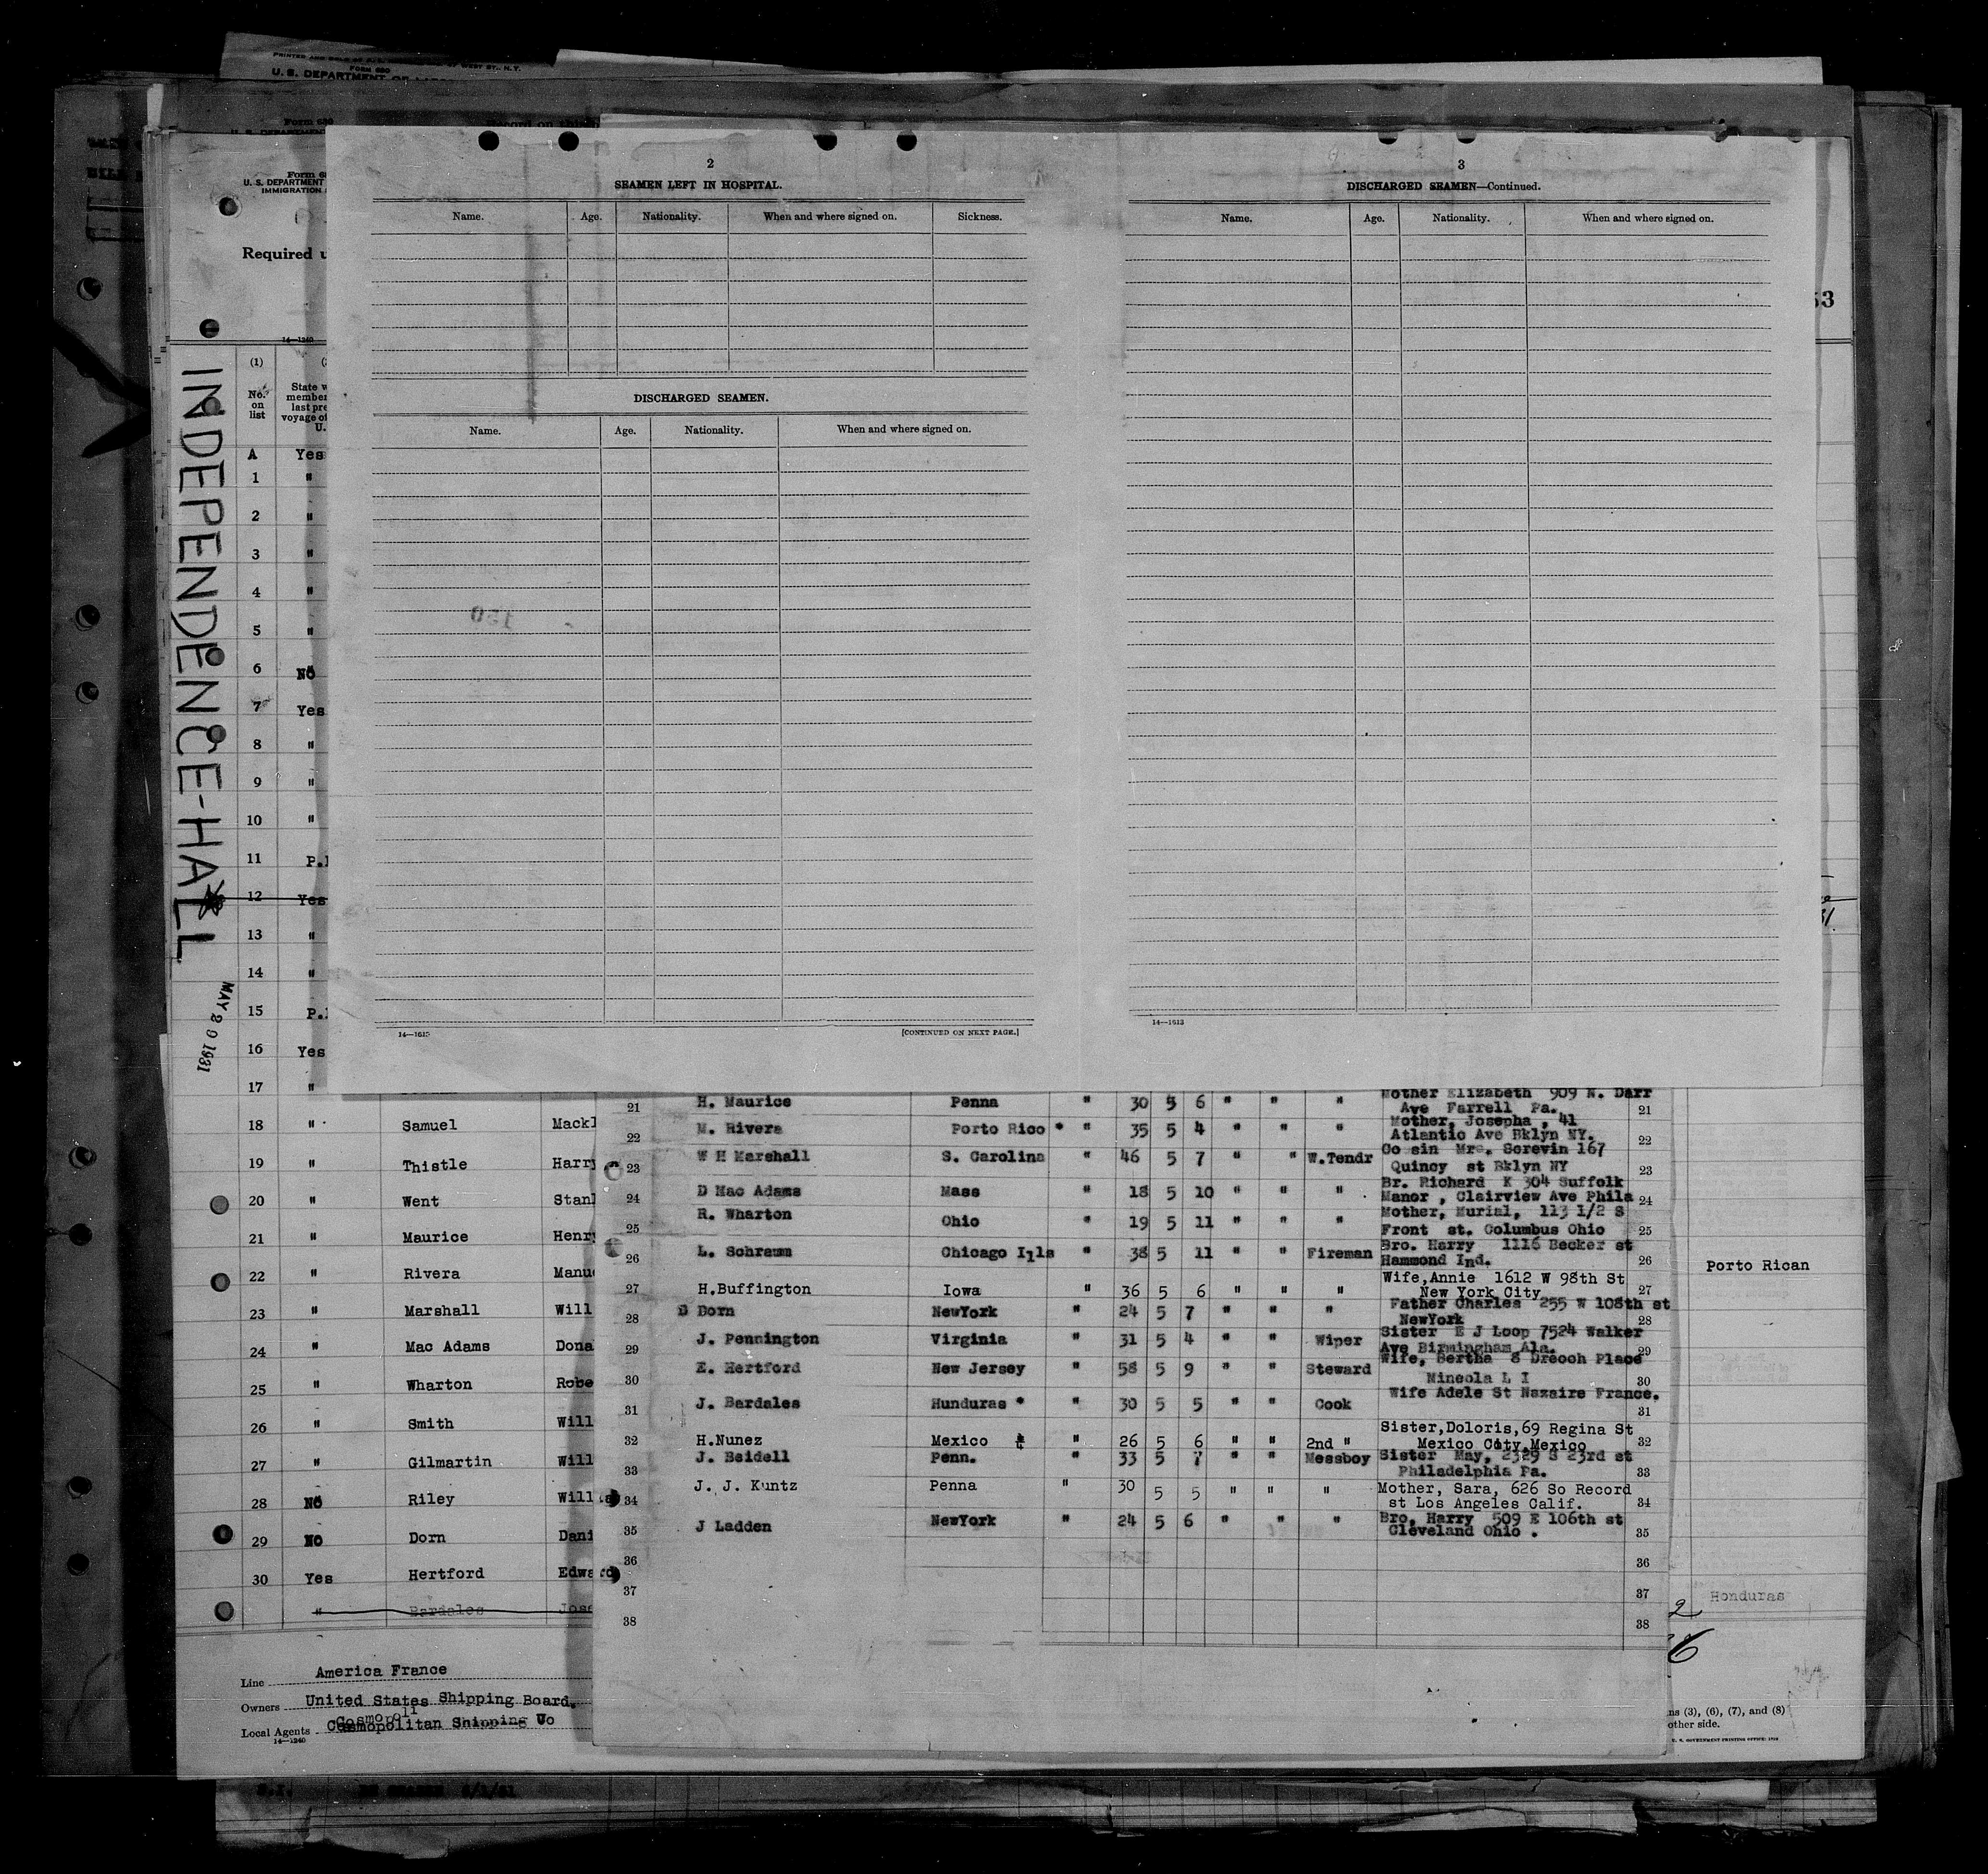 FORM 680
U. S. DEPARTMENT OF
Form 680
Record on this
U. S. DEPARTMENT
IMMIGRATION
Required u
14—1240
53
INDEPENDENCE-HALL
MAY 20 1931
2
SEAMEN LEFT IN HOSPITAL.
Name. Age. Nationality. When and where signed on. Sickness.
DISCHARGED SEAMEN.
Name. Age. Nationality. When and where signed on.
14—1613
[CONTINUED ON NEXT PAGE.]
3
DISCHARGED SEAMEN—Continued.
Name. Age. Nationality. When and where signed on.
14—1613
(1)
No. on list
State w
member
last pre
voyage of
U.
A Yes
1 "
2 "
3 "
4 "
5 "
6 No
7 Yes
8 "
9 "
10 "
11 P.
12 Yes
13 "
14 "
15 P.
16 Yes
17 "
18 " Samuel Mackl
19 " Thistle Harry
20 " Went Stanl
21 " Maurice Henry
22 " Rivera Manue
23 " Marshall Will
24 " Mac Adams Dona
25 " Wharton Robe
26 " Smith Will
27 " Gilmartin Will
28 No Riley Willia
29 No Dorn Dani
30 Yes Hertford Edward
" Bardales Jose
Line America France
Owners United States Shipping Board.
Cosmopoli
Local Agents Cosmopolitan Shipping Co
14—1240
21 H. Maurice Penna " 30 5 6 " " " Mother Elizabeth 909 N. Darr
Ave Farrell Pa. 21
22 M. Rivera Porto Rico * " 35 5 4 " " " Mother, Josepha , 41
Atlantic Ave Bklyn NY. 22
23 W H Marshall S. Carolina " 46 5 7 " " W.Tendr Co sin Mrs. Screvin 167
Quincy st Bklyn NY 23
24 D Mac Adams Mass " 18 5 10 " " " Br. Richard K 304 Suffolk
Manor , Clairview Ave Phila 24
25 R. Wharton Ohio " 19 5 11 " " " Mother, Murial, 113 1/2 S
Front st. Columbus Ohio 25
26 L. Schramm Chicago Ills " 38 5 11 " " Fireman Bro. Harry 1116 Becker st
Hammond Ind. 26
27 H.Buffington Iowa " 36 5 6 " " " Wife,Annie 1612 W 98th St
New York City 27
28 D Dorn NewYork " 24 5 7 " " " Father Charles 255 W 108th st
NewYork 28
29 J. Pennington Virginia " 31 5 4 " " Wiper Sister E J Loop 7524 Walker
Ave Birmingham Ala. 29
30 E. Hertford New Jersey " 58 5 9 " " Steward Wife, Bertha 8 Dreoch Place
Mineola L I 30
31 J. Bardales Hunduras * " 30 5 5 " " Cook Wife Adele St Nazaire France.
31
32 H.Nunez Mexico " 26 5 6 " " 2nd " Sister,Doloris,69 Regina St
Mexico City,Mexico 32
33 J. Beidell Penn. " 33 5 7 " " Messboy Sister May, 2329 S 23rd st
Philadelphia Pa. 33
34 J. J. Kuntz Penna " 30 5 5 " " " Mother, Sara, 626 So Record
st Los Angeles Calif. 34
35 J Ladden NewYork " 24 5 6 " " " Bro, Harry 509 E 106th st
Cleveland Ohio . 35
36 36
37 37
38 38
Porto Rican
Honduras
2
ns (3), (6), (7), and (8)
other side.
U. S. GOVERNMENT PRINTING OFFICE